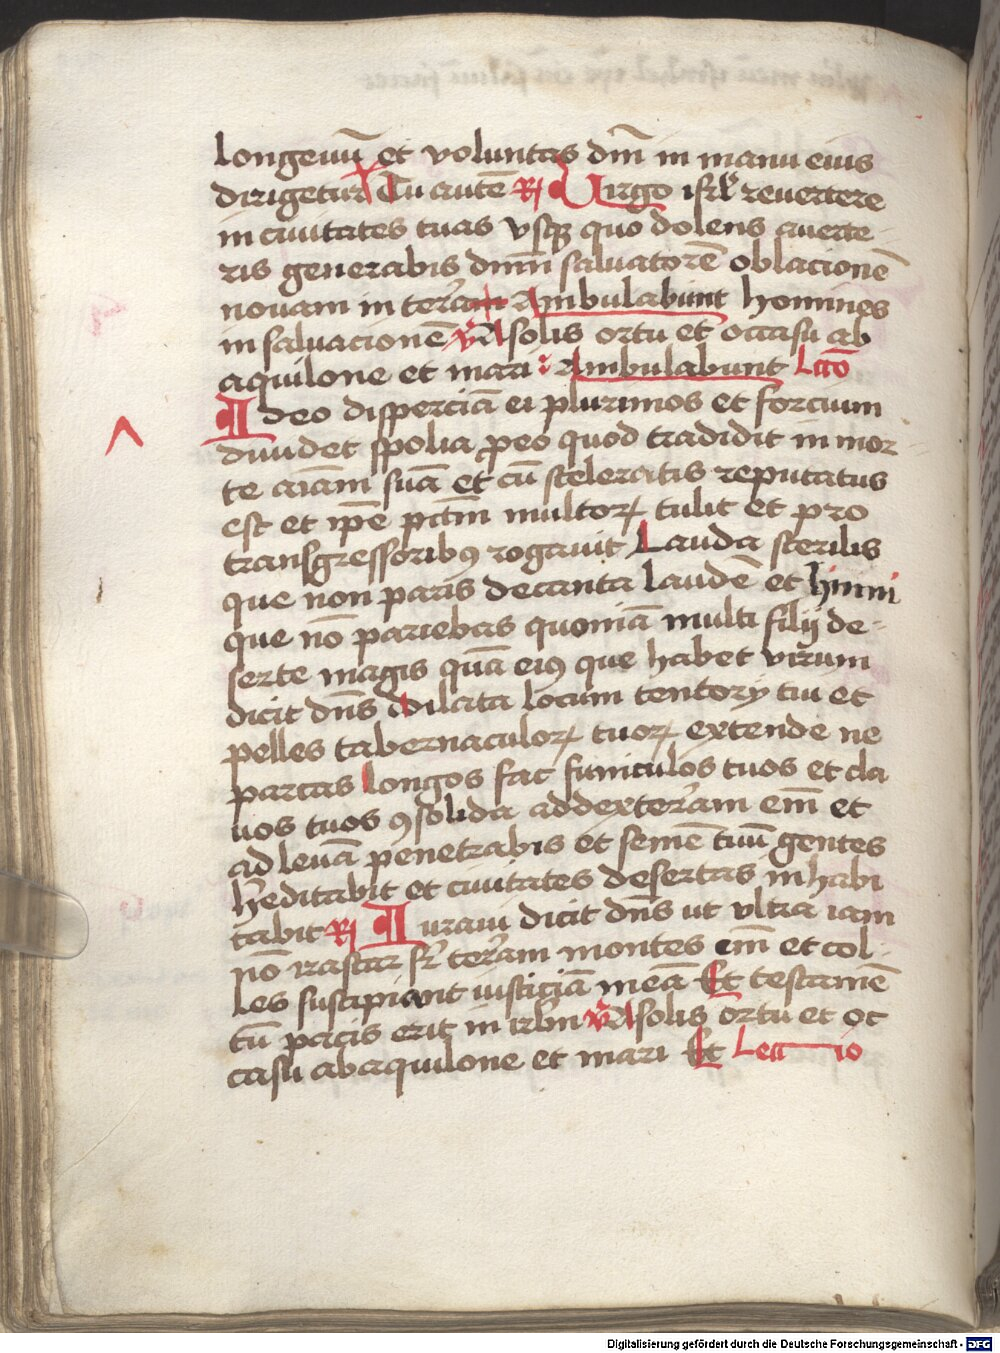 longeuū et voluntas dm̄ in manu eius
dirigetur Tu autē ℟ Virgo isrl̄ reuertere
in ciuitates tuas vsqꝫ quo dolens auerte-
ris generabis dnm̄ saluatorē oblacionē
nouam in terram Ambulabunt homines
in saluacionē ℣ A solis ortu et occasu ab
aquilone et mari Ambulabunt Lcō
Ideo disperciā ei plurimos et forcium
diuidet spolia ꝓ eo quod tradidit in mor-
te aīam suā et cū sceleratis reputatus
est et ip̄e pctm̄ multoꝝ tulit et pro
transgressoribꝯ rogauit Lauda sterilis
que non paris decanta laudē et hinni
que nō pariebas quoniā multi filij de-
serte magis quā eiꝯ que habet virum
dicit dn̄s dilata locum tentorij tui et
pelles tabernaculoꝝ tuoꝝ extende ne
parcas longos fac funiculos tuos et cla
uos tuos ꝯsolida ad dexteram em̄ et
ad leuā penetrabis et semē tuū gentes
hereditabit et ciuitates desertas inhabi
tabit ℟ Iuraui dicit dn̄s ut vltra iam
nō irascar sr̄ terram montes em̄ et col-
les suscipiant iusticiā meā Et testamē
tū pacis erit in irlm̄ ℣ A solis ortu et oc
casu ab aquilone et mari Et Leccio
Digitalisierung gefördert durch die Deutsche Forschungsgemeinschaft - DFG